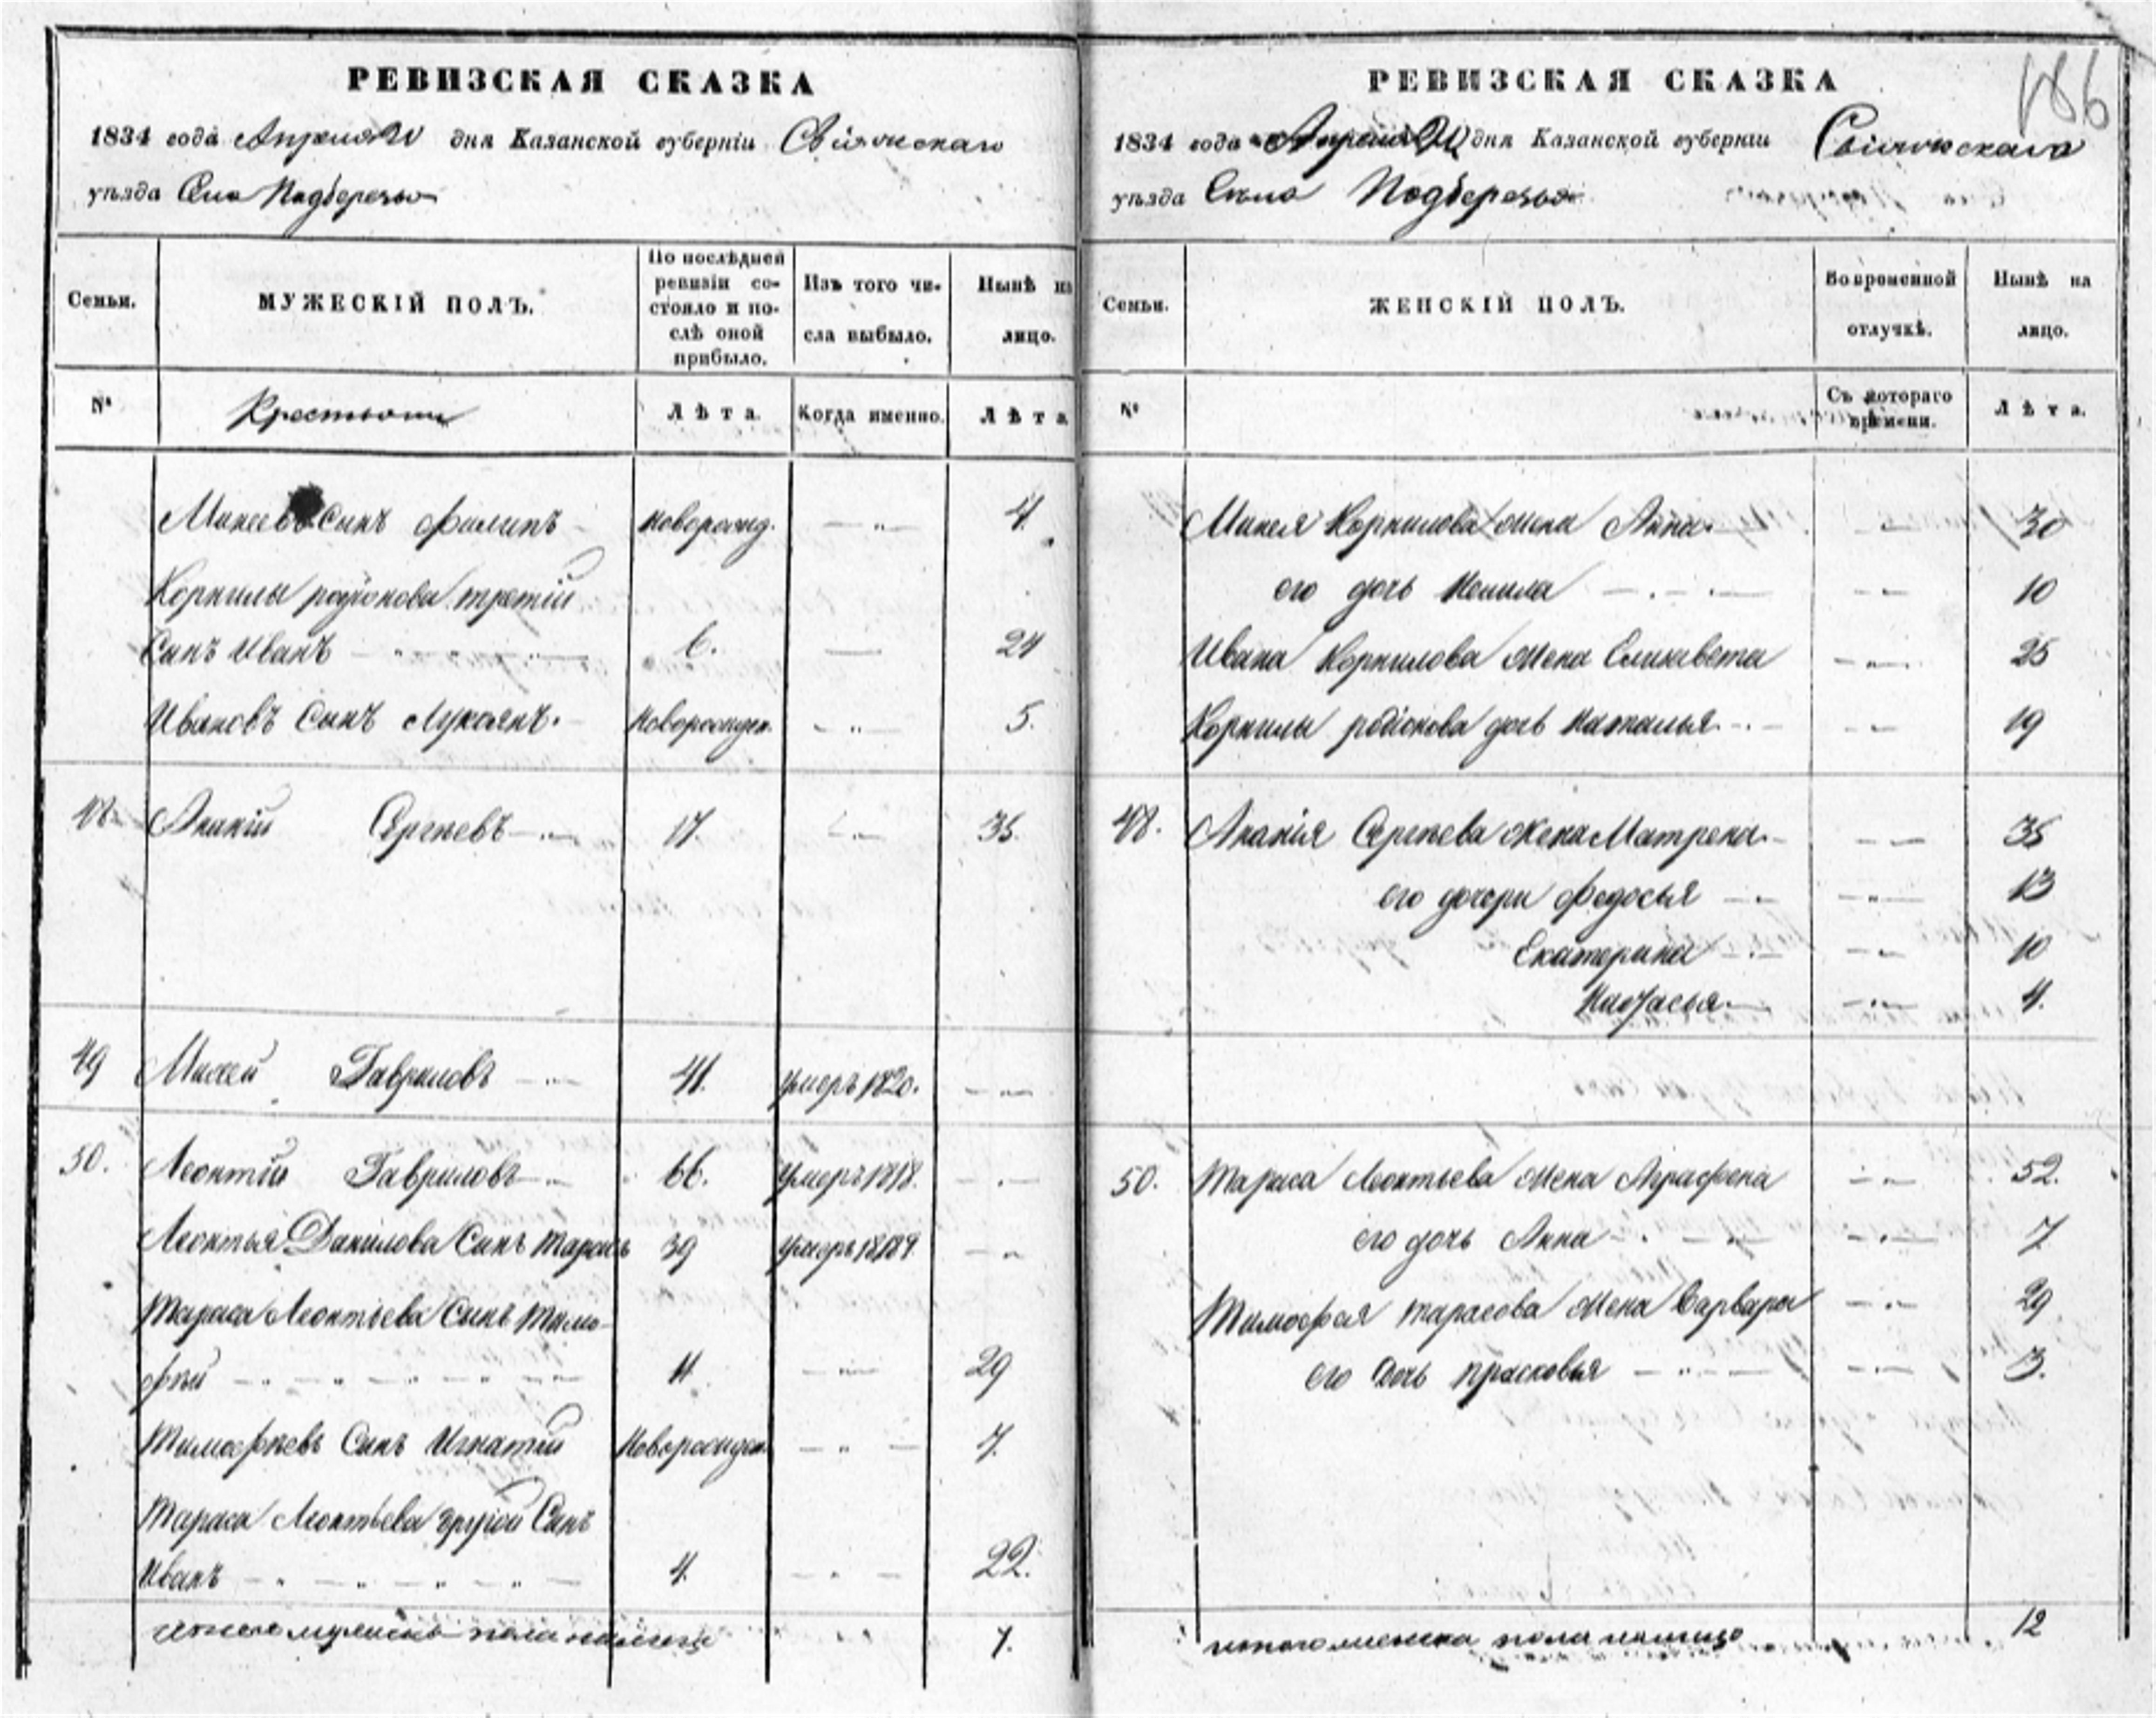 РЕВИЗСКАЯ СКАЗКА
1834 года Апреля 20 дня Казанской губерніи Свіяжскаго
уѣзда Села Подберезья
Семьи.
МУЖЕСКІЙ ПОЛЪ.
По послѣдней
ревизіи со-
стояло и по-
слѣ оной
прибыло.
Изъ того чи-
сла выбыло.
Нынѣ на
лицо.
№
Крестьяни
Лѣта.
Когда именно.
Лѣта
Микеевъ Сынъ Филипъ новорожд. 4.
Корнилы родіонова третій
Сынъ Иванъ 6. 24
Ивановъ Сынъ Лукоянъ. Новорожден. 5.
48 Ананій Сергѣевъ 17. 35.
49 Михей Гавриловъ 41. умеръ 1820.
50. Леонтій Гавриловъ 66. умеръ 1818.
Леонтья Данилова Сынъ Тарасъ 39 умеръ
Тараса Леонтьева Сынъ Тимо-
фѣй 11. 29
Тимофѣевъ Сынъ Игнатій Новорожден. 7.
Тараса Леонтьева другой Сынъ
Иванъ 4. 22.
итого мужеска пола налицо 7.
186
РЕВИЗСКАЯ СКАЗКА
1834 года Апреля 20 дня Казанской губерніи Свіяжскаго
уѣзда Села Подберезья
Семьи.
ЖЕНСКІЙ ПОЛЪ.
Во временной
отлучкѣ.
Нынѣ на
лицо.
№
Съ котораго
времени.
Лѣта.
Микея Корнилова жена Анна 30
его дочь Ненила 10
Ивана Корнилова жена Елизавета 25
Корнилы родіонова дочь Наталья 19
48. Ананія Сергѣева жена Матрена 35
его дочери Федосья 13
Екатерина 10
Настасья 4.
50. Тараса Леонтьева жена Аграфена 52.
его дочь Анна 7
Тимофея тарасова жена Варвара 29
его дочь прасковья 3.
итого женска пола налицо 12